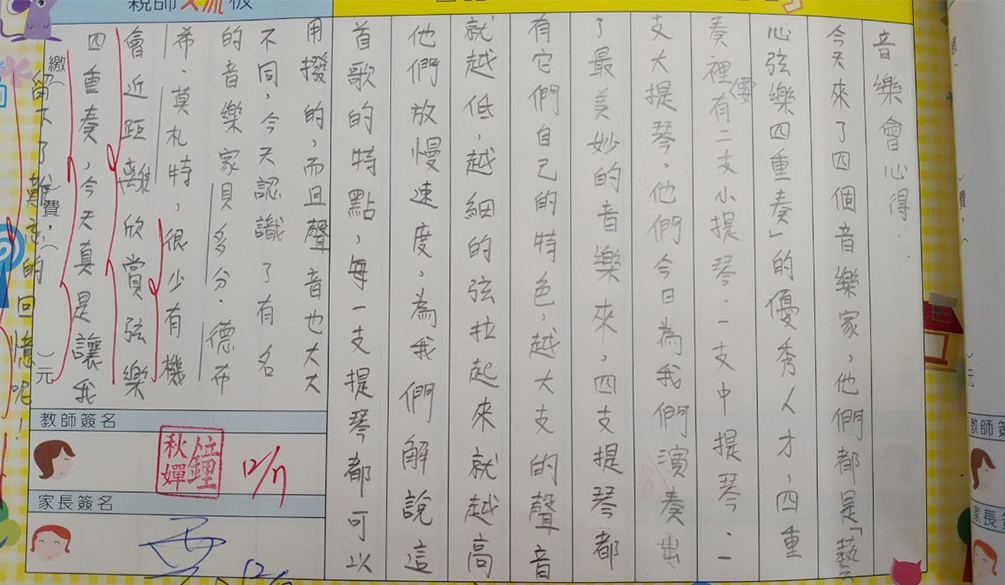 親師交流板
音樂會心得.
今天來了四個音樂家,他們都是「藝
心弦樂四重奏」的優秀人才,四重
奏裡要有二支小提琴.一支中提琴.一
支大提琴.他們今日為我們演奏出
了最美妙的音樂來,四支提琴都
有它們自己的特色,越大支的聲音
就越低,越細的弦拉起來就越高
他們放慢速度,為我們解說這
首歌的特點,每一支提琴都可以
用撥的,而且聲音也大大
不同,今天認識了有名
的音樂家貝多分.德布
希.莫札特,很少有機
會近距離欣賞弦樂
四重奏,今天真是讓我
留下了難忘的回憶呢!
繳
費,
元
教師簽名
鐘秋嬋
12/17
家長簽名
元
教師簽
家長簽名